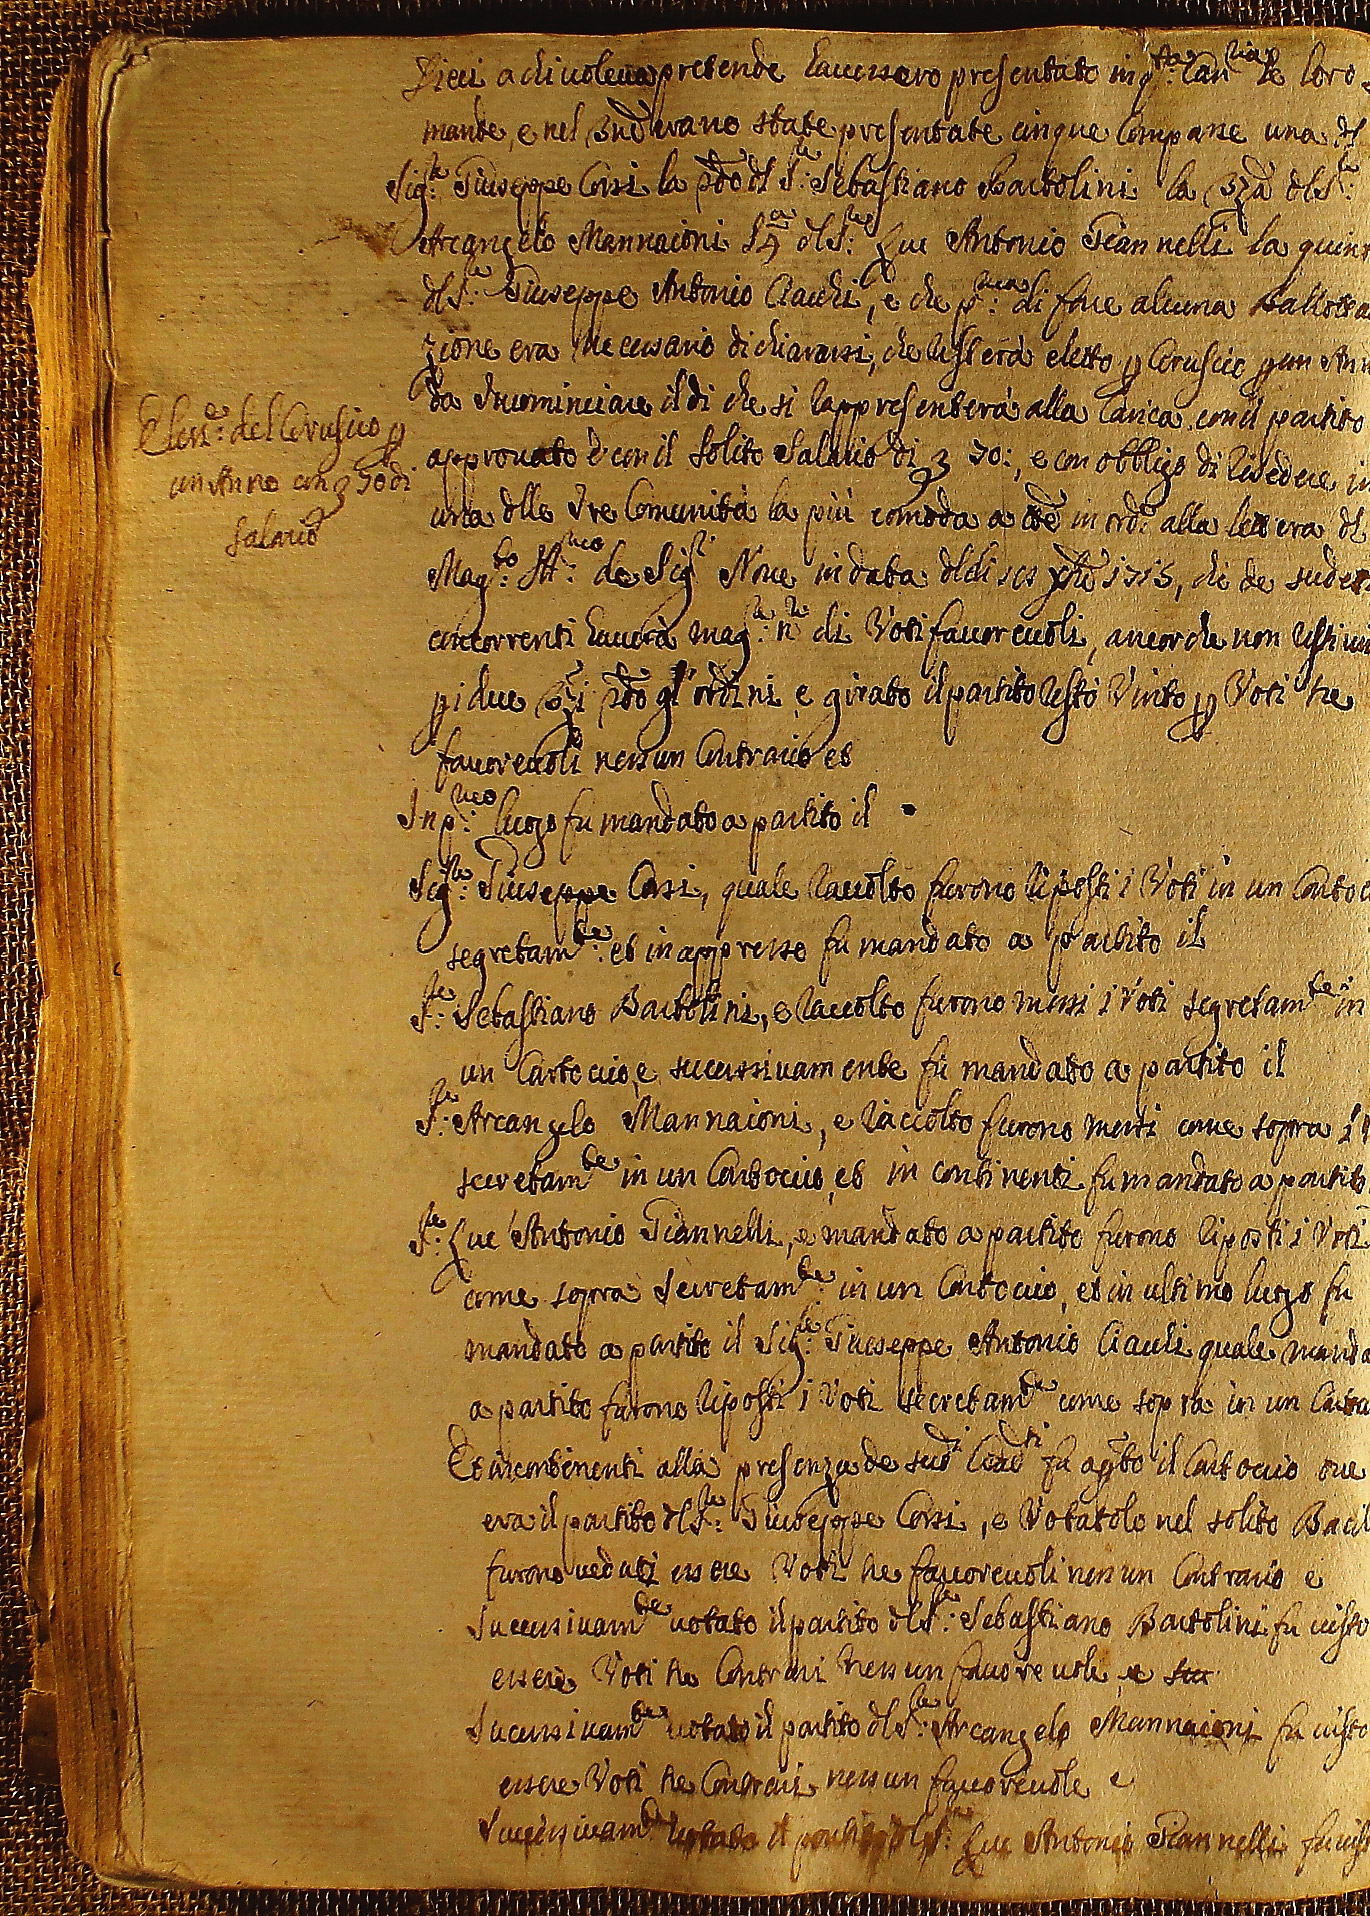 Dieci a chi voleva pretende havessero presentato in q.ta Can.ria le loro
mande, e nel 3ne erano state presentate cinque Comparse una dl
Sig.re Giuseppe Corsi la 2do dl S.re Sebastiano Bartolini la 3za dl S.re
Arcangelo Mannaioni la 4a dl S.re Luc Antonio Giannelli la quin
dl S.re Giuseppe Antonio Ciachi, e che p.ma di fare alcuna Ballotta
zione era necessario dichiararsi, che resterà eletto p Cerusico p un Ann
da Incominciare il dì che si rappresenterà alla Carica con il partito
approvato e con il solito Salario di 3 70:, e con obbligo di risedere in
una dlle tre Comunità la più comoda a in ordi alla lettera dl
Mag.to de Sig.i Nove in data dl di 1715, chi de sude
concorrenti haverà mag.re n.ro di Voti favorevoli, ancorche non
p i due 3zi 2do gl'ordini, e girato il partito restò Vinto p Voti tre
favorevoli nessun Contrario et
In p.mo luogo fu mandato a partito il
Sig.re Giuseppe Corsi, quale raccolto furono riposti i Voti in un Cartoc
segretam.te et in appresso fu mandato a partito il
S.re Sebastiano Bartolini, e raccolto furono messi i Voti segretam.te in
un Cartoccio, e successivamente fù mandato a partito il
S.re Arcangelo Mannaioni, e raccolto furono messi come sopra i
secretam.te in un Cartoccio, et in continenti fu mandato a partito
S.re Luc' Antonio Giannelli, e mandato a partito furono riposti i Voti
come sopra Secretam.te in un Cartoccio, et in ultimo luogo fu
mandato a partito il Sig.re Giuseppe Antonio Ciachi quale manda
a partito furono riposti i Voti secretam.te come sopra in un Carto
Et incontinenti alla presenza de sud.i fu ap.to il Cartoccio ove
era il partito dl S.re Giuseppe Corsi, e Votatolo nel solito Bacil
furono veduti essere Voti tre favorevoli nessun Contrario e
Successivam.te votato il partito dl S.re Sebastiano Bartolini fu visto
essere Voti tre Contrari nessun favorevole, e
Successivam.te votato il partito dl S.re Arcangelo Mannaioni fu visto
essere Voti tre Contrari nessun favorevole e
Successivam.te votato il partito dl S.re Luc Antonio Giannelli fu vis
Elezz.e del Cerusico p
un Anno con 3 70 di
Salario